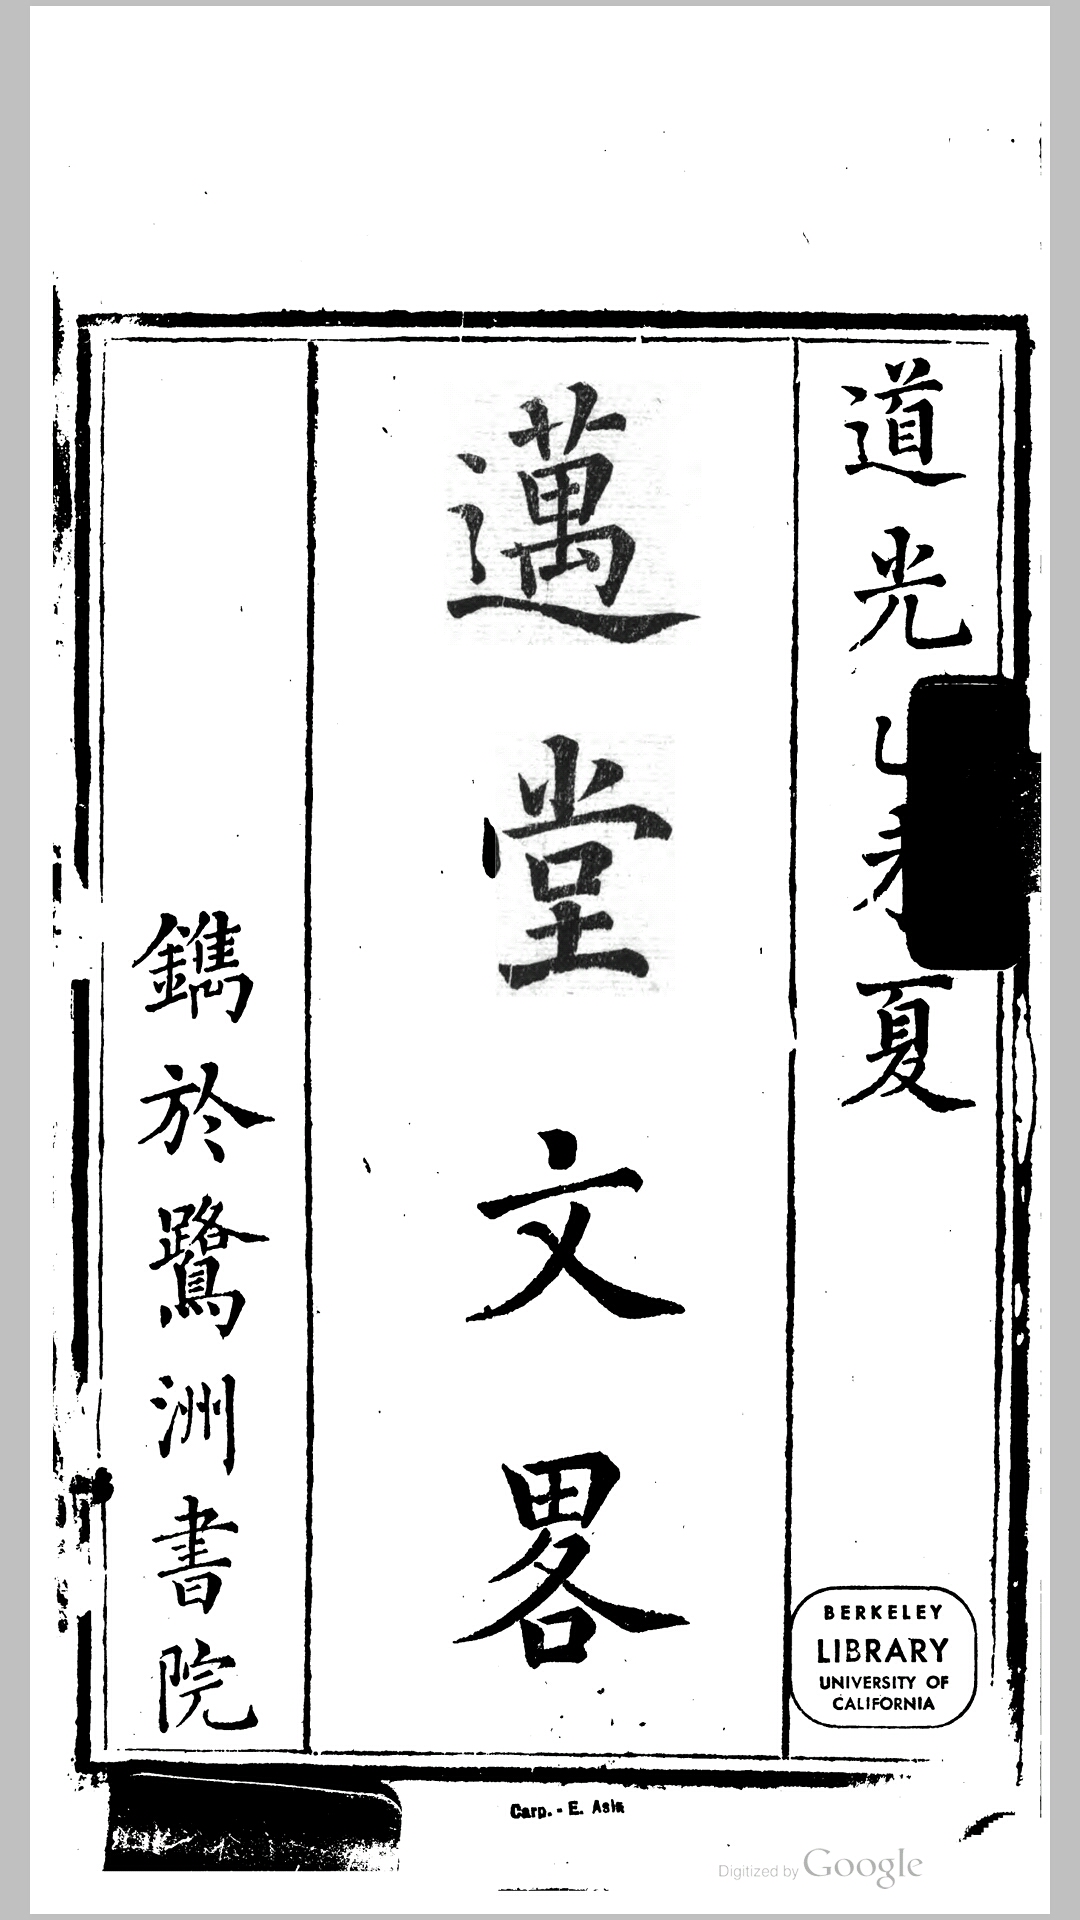 道光夏
邁堂文畧
鐫於鷺洲書院
BERKELEY
LIBRARY
UNIVERSITY OF
CALIFORNIA
Carp. - E. Asia
Digitized by Google